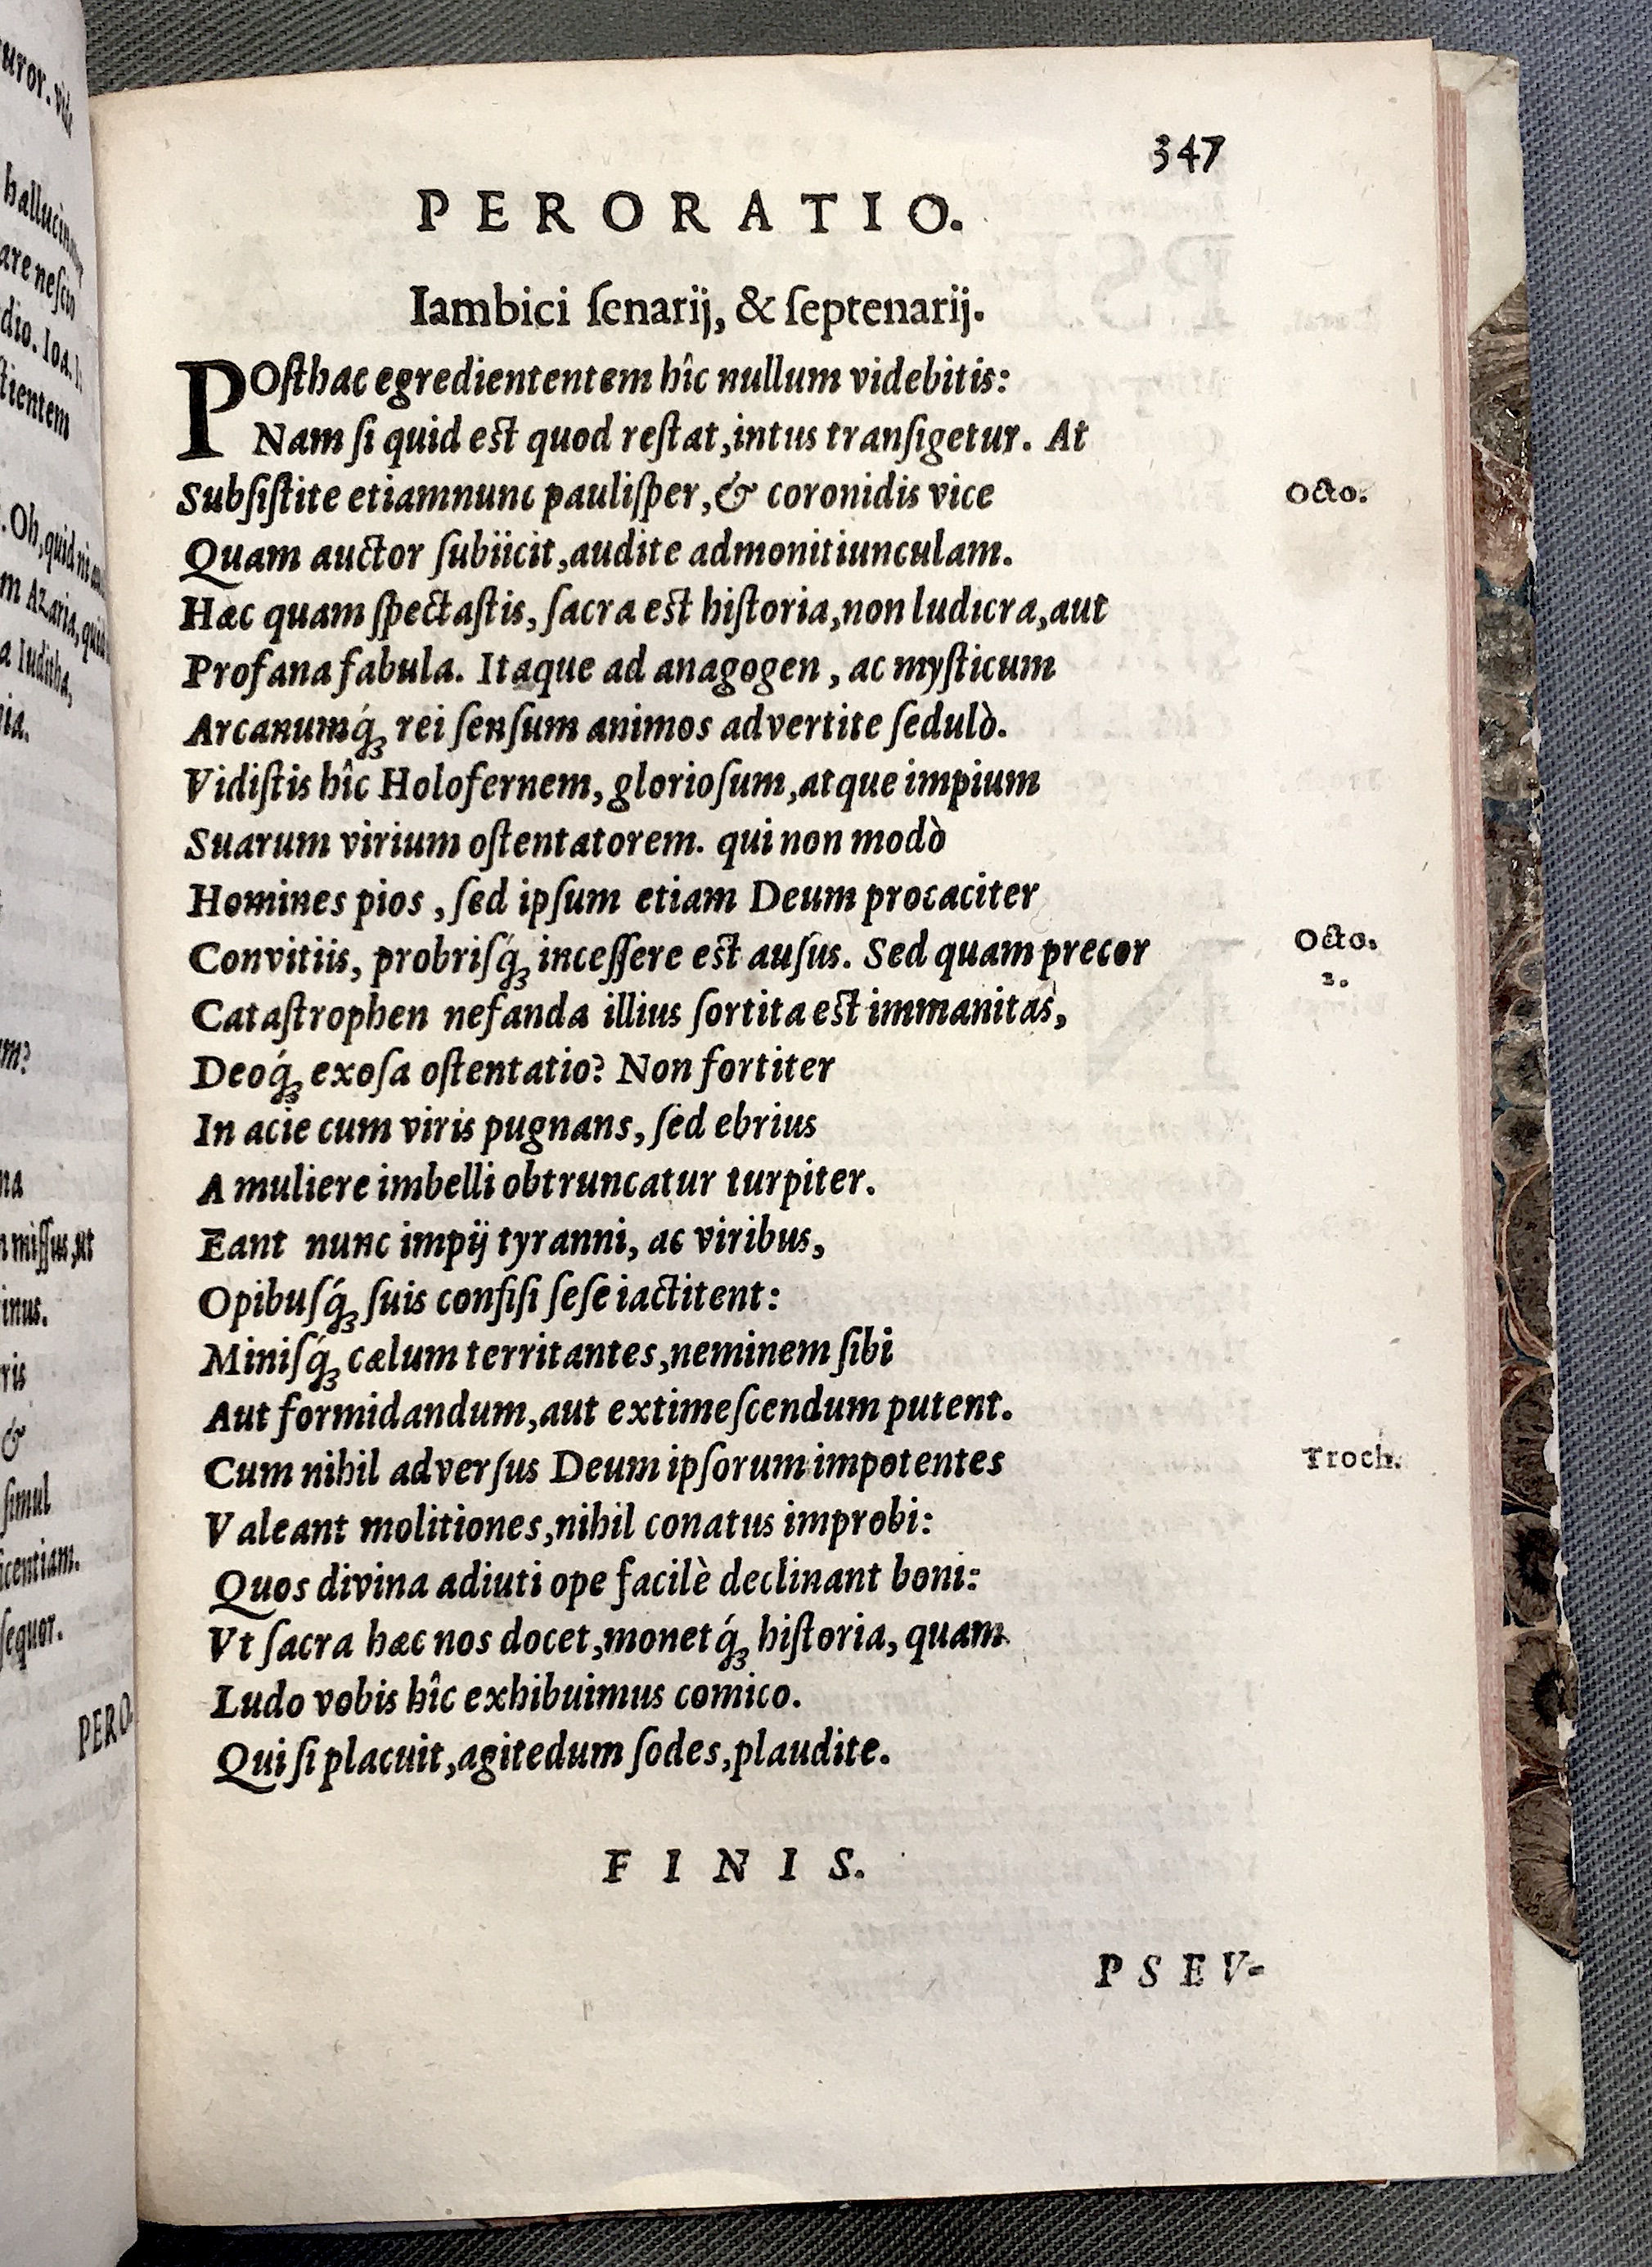 347
PERORATIO.
Iambici ſenarij, & ſeptenarij.
POſthac egrediententem hîc nullum videbitis:
Nam ſi quid est quod reſtat, intus tranſigetur. At
Subſiſtite etiamnunc pauliſper, & coronidis vice
Octo.
Quam auctor ſubiicit, audite admonitiunculam.
Hæc quam ſpectaſtis, ſacra est hiſtoria, non ludicra, aut
Profana fabula. Itaque ad anagogen, ac myſticum
Arcanumq́ꝫ rei ſenſum animos advertite ſedulò.
Vidiſtis hîc Holofernem, glorioſum, atque impium
Suarum virium oſtentatorem. qui non modò
Homines pios, ſed ipſum etiam Deum procaciter
Convitiis, probriſq́ꝫ inceſſere est auſus. Sed quam precor
Octo.
2.
Cataſtrophen nefanda illius ſortita est immanitas,
Deoq́ꝫ exoſa oſtentatio? Non fortiter
In acie cum viris pugnans, ſed ebrius
A muliere imbelli obtruncatur turpiter.
Eant nunc impij tyranni, ac viribus,
Opibuſq́ꝫ ſuis confiſi ſeſe iactitent:
Miniſq́ꝫ cælum territantes, neminem ſibi
Aut formidandum, aut extimeſcendum putent.
Cum nihil adverſus Deum ipſorum impotentes
Troch.
Valeant molitiones, nihil conatus improbi:
Quos divina adiuti ope facilè declinant boni:
Vt ſacra hæc nos docet, monetq́ꝫ hiſtoria, quam
Ludo vobis hîc exhibuimus comico.
Qui ſi placuit, agitedum ſodes, plaudite.
FINIS.
PSEV-